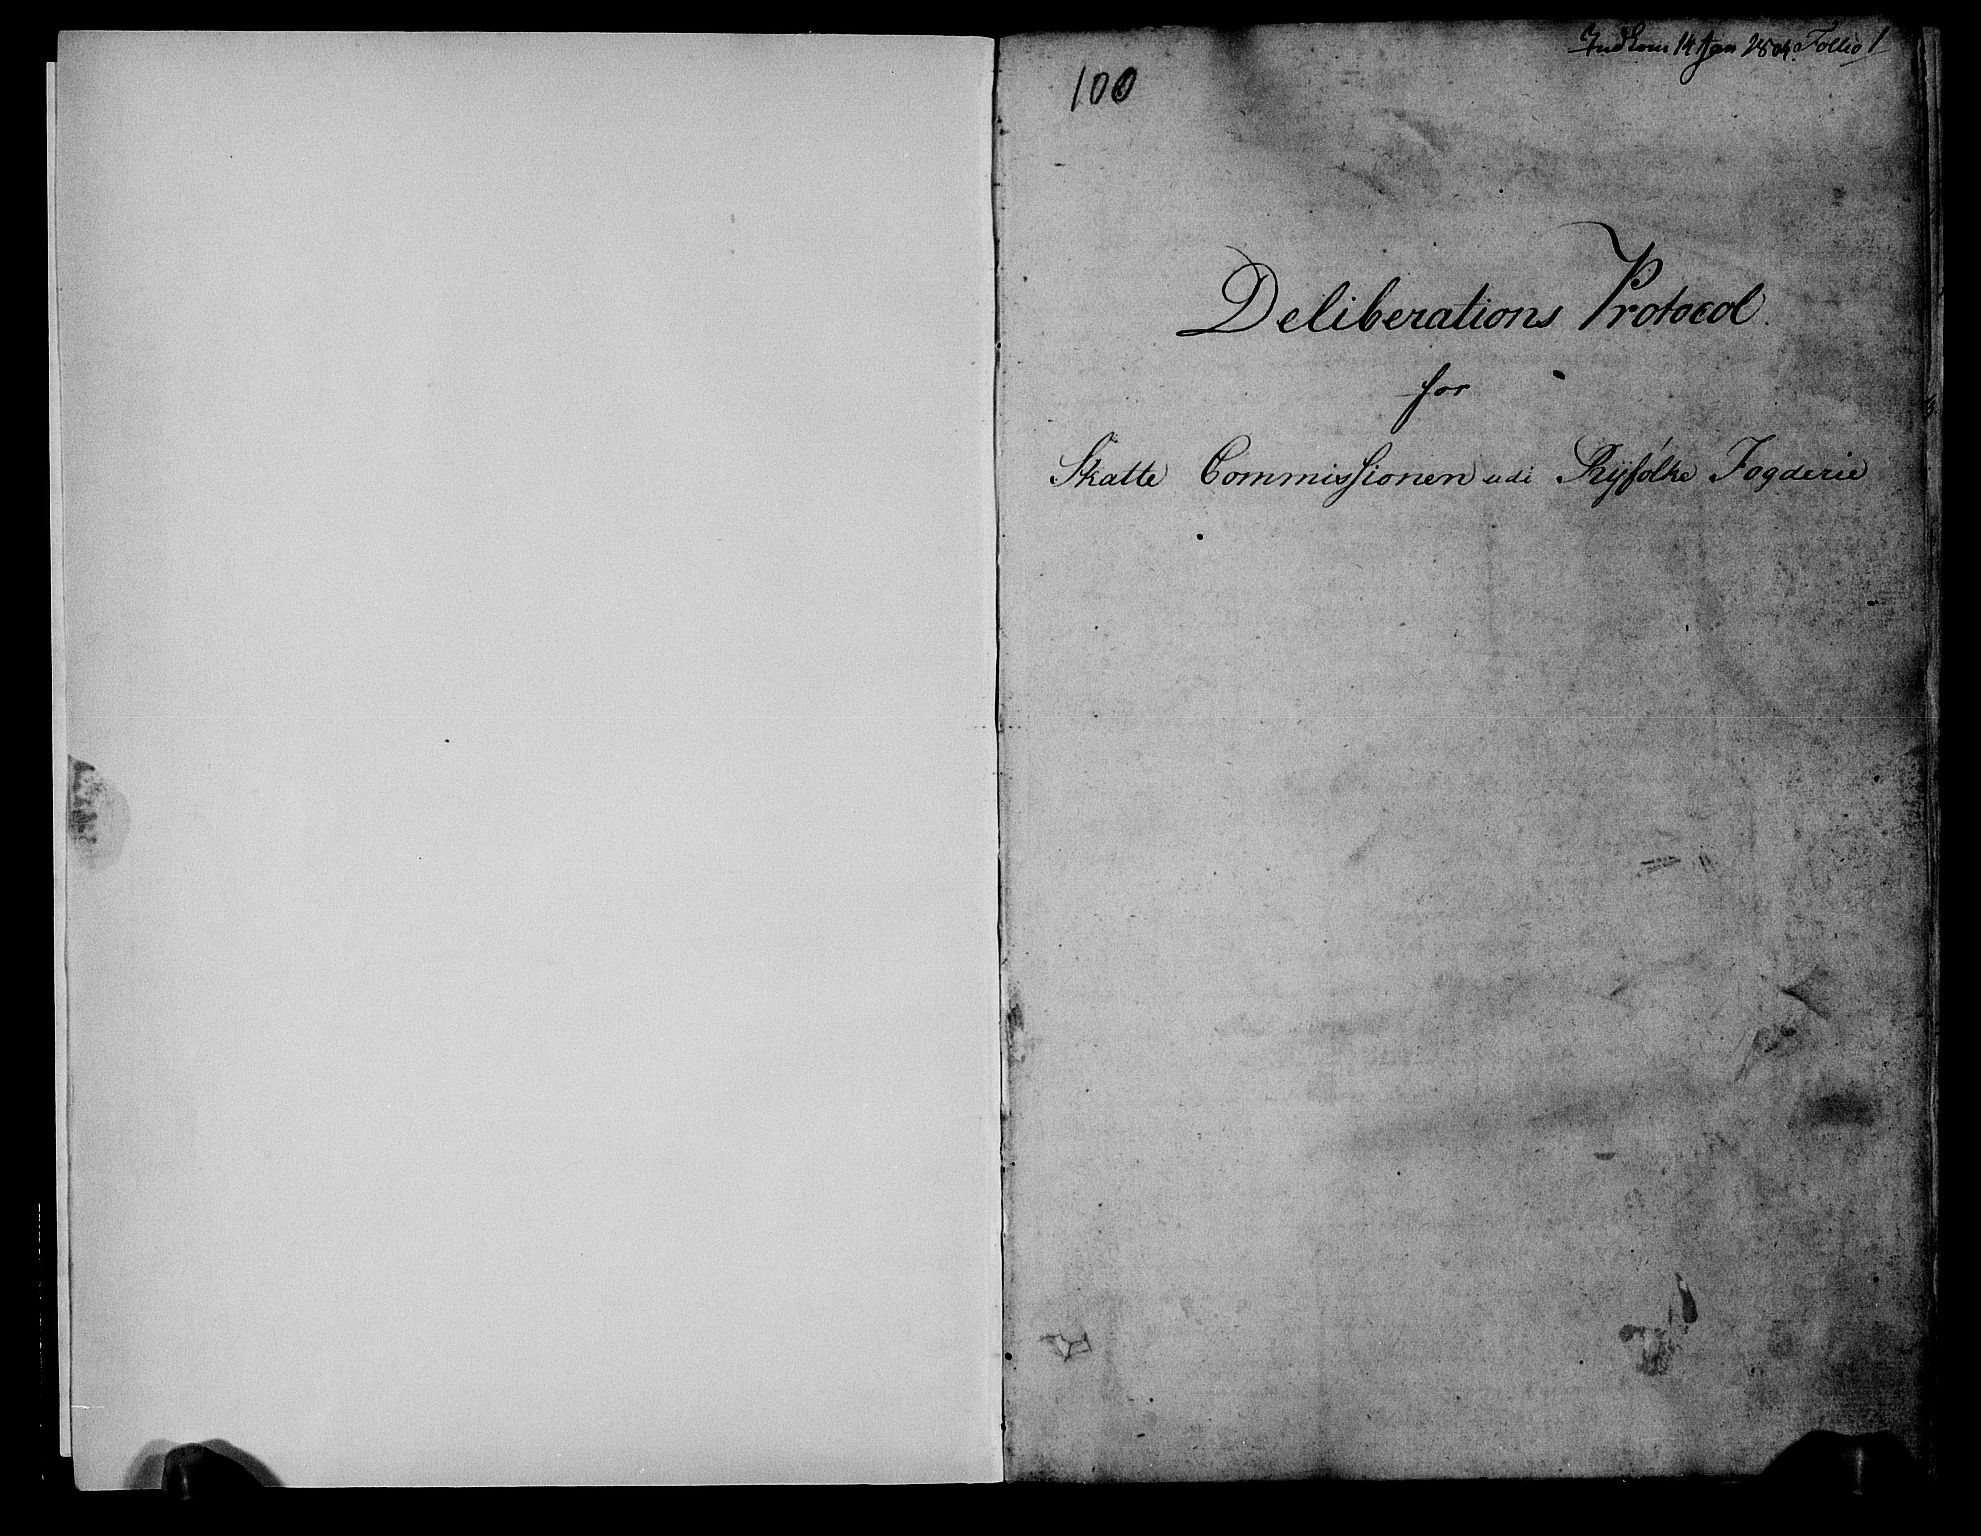 Indkom 14 Jan 1804. Follio 1
100
Deliberations Protocol
for
Skatte Commissionen udi Ryfølke Fogderie